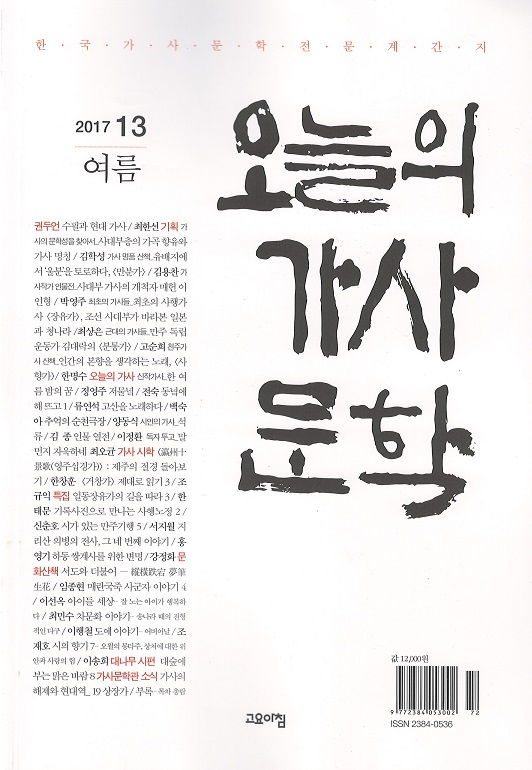 한·국·가·사·문·학·전·문·계·간·지
2017 13
여름
오늘의
가사
문학
권두언 수필과 현대 가사 / 최한선 기획 가
사의 문학성을 찾아서_사대부층의 가곡 향유와
가사 명칭 / 김학성 가사 명품 산책_유배지에
서 ‘울분’을 토로하다, 〈만분가〉 / 김용찬 가
사작가 인물전_사대부 가사의 개척자 매헌 이
인형 / 박영주 최초의 가사들_최초의 사행가
사 〈장유가〉, 조선 사대부가 바라본 일본
과 청나라 / 최상은 근대의 가사들_만주 독립
운동가 김대락의 〈분통가〉 / 고순희 천주가
사 산책_인간의 본향을 생각하는 노래, 〈사
향가〉 / 한명수 오늘의 가사 신작가사_한 여
름 밤의 꿈 / 정영주 저물녘 / 전숙 동녘에
해 뜨고 1 / 류연석 고산을 노래하다 / 백숙
아 추억의 순천극장 / 양동식 시인의 가사_석
류 / 김 종 인물 열전 / 이정환 독자 투고_말
먼지 자욱하네 최오균 가사 시학 〈瀛州十
景歌(영주십경가)〉 : 제주의 절경 돌아보
기 / 한창훈 〈거창가〉 제대로 읽기 3 / 조
규익 특집 일동장유가의 길을 따라 3 / 한
태문 기록사진으로 만나는 사행노정 2 /
신춘호 서가 있는 만주기행 5 / 서지월 지
리산 의병의 전사, 그 네 번째 이야기 / 홍
영기 하동 쌍계사를 위한 변명 / 강정화 문
화산책 서도와 더불어 — 縱橫跌宕 夢筆
生花 / 임종현 매란국죽 사군자 이야기 4
/ 이선옥 아이들 세상– 잘 노는 아이가 행복하
다 / 최민수 차문화 이야기– 송나라 때의 전형
적인 다구 / 이행철 도예 이야기– 어머이날 / 조
재호 시의 향기 7– 오월의 몽타주, 상처에 대한 위
안과 사랑의 힘 / 이송희 대나무 시편 대숲에
부는 맑은 바람 8 가사문학관 소식 가사의
해제와 현대역_19 상장가 / 부록– 목차 총람
값 12,000원
9 772384 053002
72
ISSN 2384-0536
고요아침